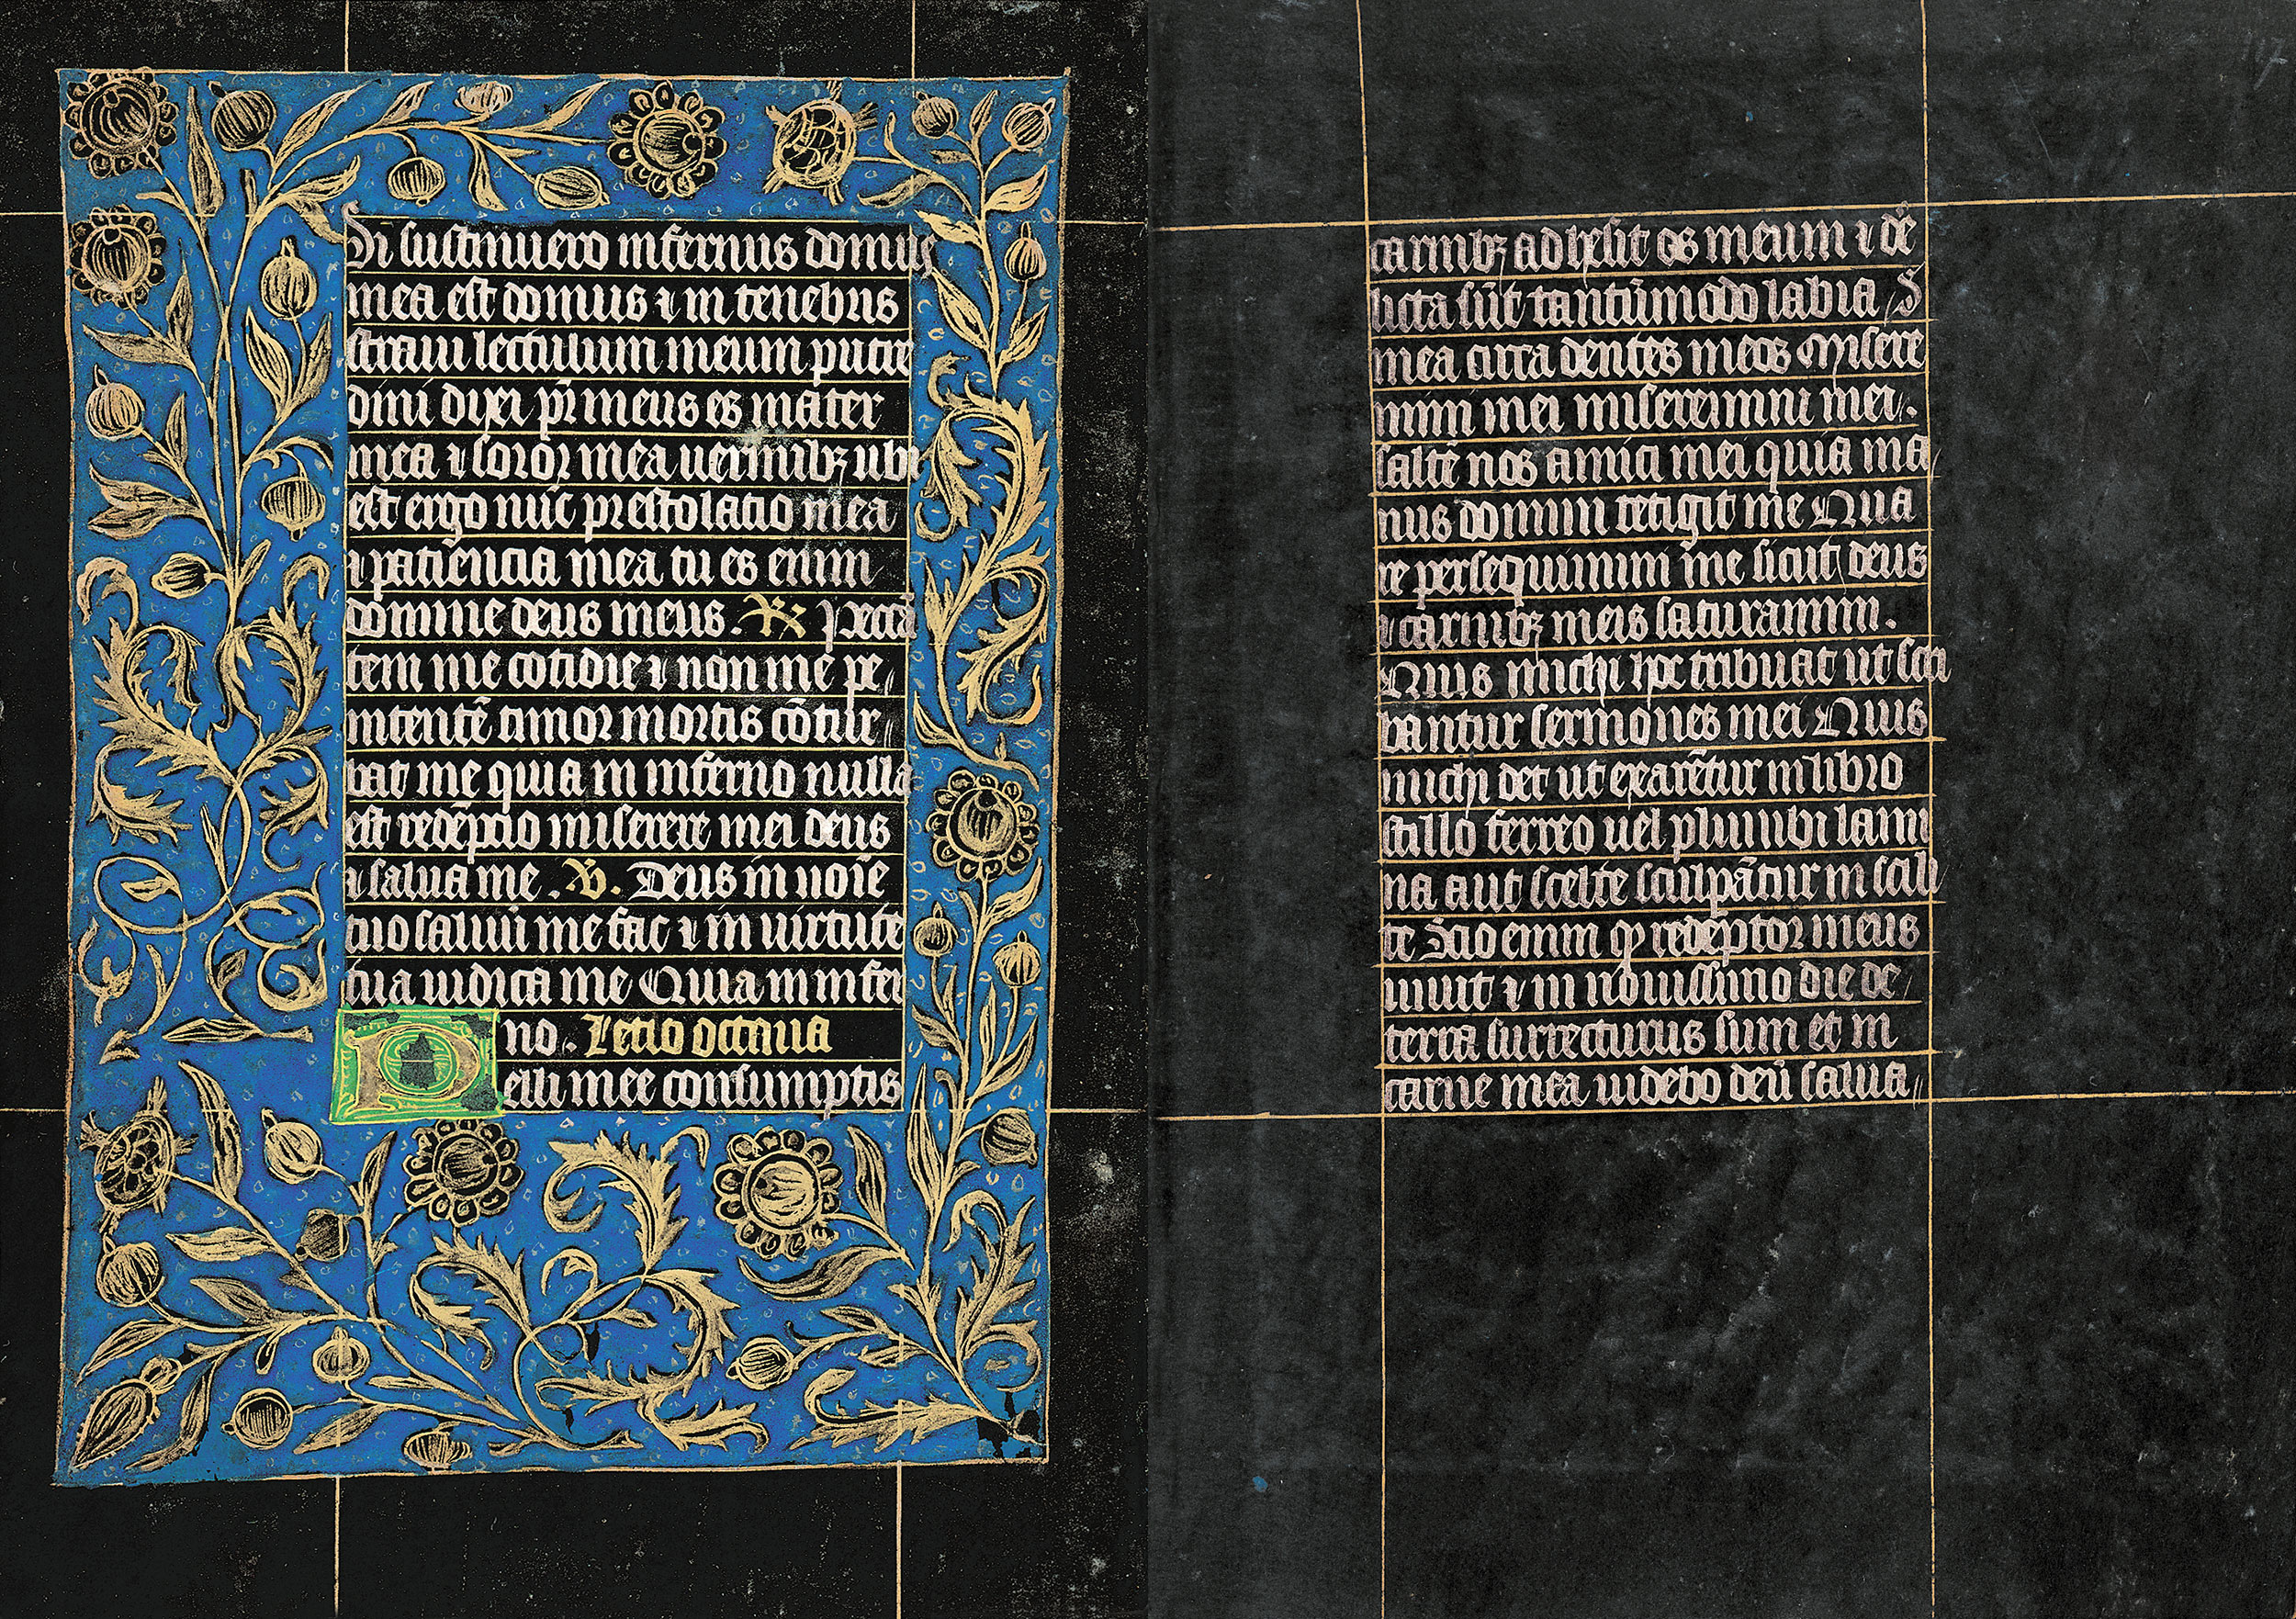 Si sustinuero infernus domus
mea est domus ⁊ in tenebris
straui lectulum meum putre
dini dixi pr̄ meus es mater
mea ⁊ soror mea uermibꝫ ubi
est ergo nūc prestolatio mea
⁊ patiencia mea tu es enim
domine deus meus. ℟ Peccā
tem me cotidie ⁊ non me pe⸗
nitentē timor mortis cōtur⸗
bat me quia in inferno nulla
est redēptio miserere mei deus
⁊ salua me. ℣. Deus in noīe
tuo saluū me fac ⁊ in uirtute
tua iudica me Quia in infer
no. Lectio octaua
Pelli mee consumptis
carnibꝫ adhesit os meum ⁊ de
licta sūt tantūmodo labia
mea circa dentes meos Misere
mini mei miseremini mei.
saltē uos amici mei quia ma
nus domini tetigit me Qua
re persequimini me sicut deus
⁊ carnibꝫ meis saturamini.
Quis michi hoc tribuat ut scri
bantur sermones mei Quis
michi det ut exarētur in libro
stillo ferreo uel plumbi lami
na aut scelte sculpātur in scili
te Scio enim ꝙ redēptor meus
uiuit ⁊ in nouissimo die de
terra surrecturus sum et in
carne mea uidebo deū salua⸗